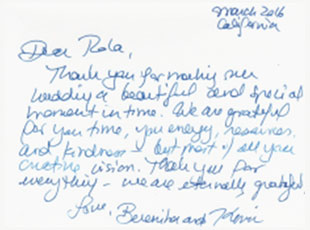 March 2016
California
Dear Rola,
Thank you for making our
wedding a beautiful and special
moment in time. We are grateful
for you time, you energy,
and kindness – but most of all you
creative vision. Thank you for
everything – we are eternally grateful.
Love, Berenika and